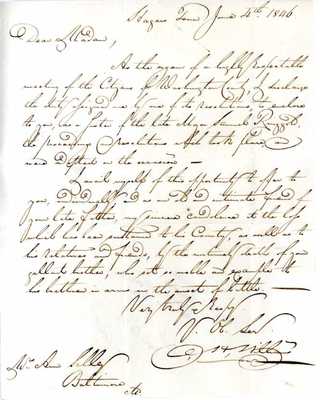 Hagers Town June 4th. 1846
Dear Madam,
As the organ of a highly respectable
meeting of the Citizens of Washington County, I discharge
the duty assigned me by one of its resolutions, to enclose
to you, as a Sister of the late Major Samuel Ringgold,
the proceedings & resolutions which took place
and adopted on the occasion —
I avail myself of the opportunity to offer to
you, individually, as an old and intimate friend of
your late father, my sincere condolence at the loss
which has been sustained to the Country, as well as to
his relatives and friends, by the untimely death of your
gallant brother, who set so noble an example to
his brethren in arms in the of battle —
Very truly & Resp.
Yr. Ob. Sevt.
Mrs. Ann
Baltimore